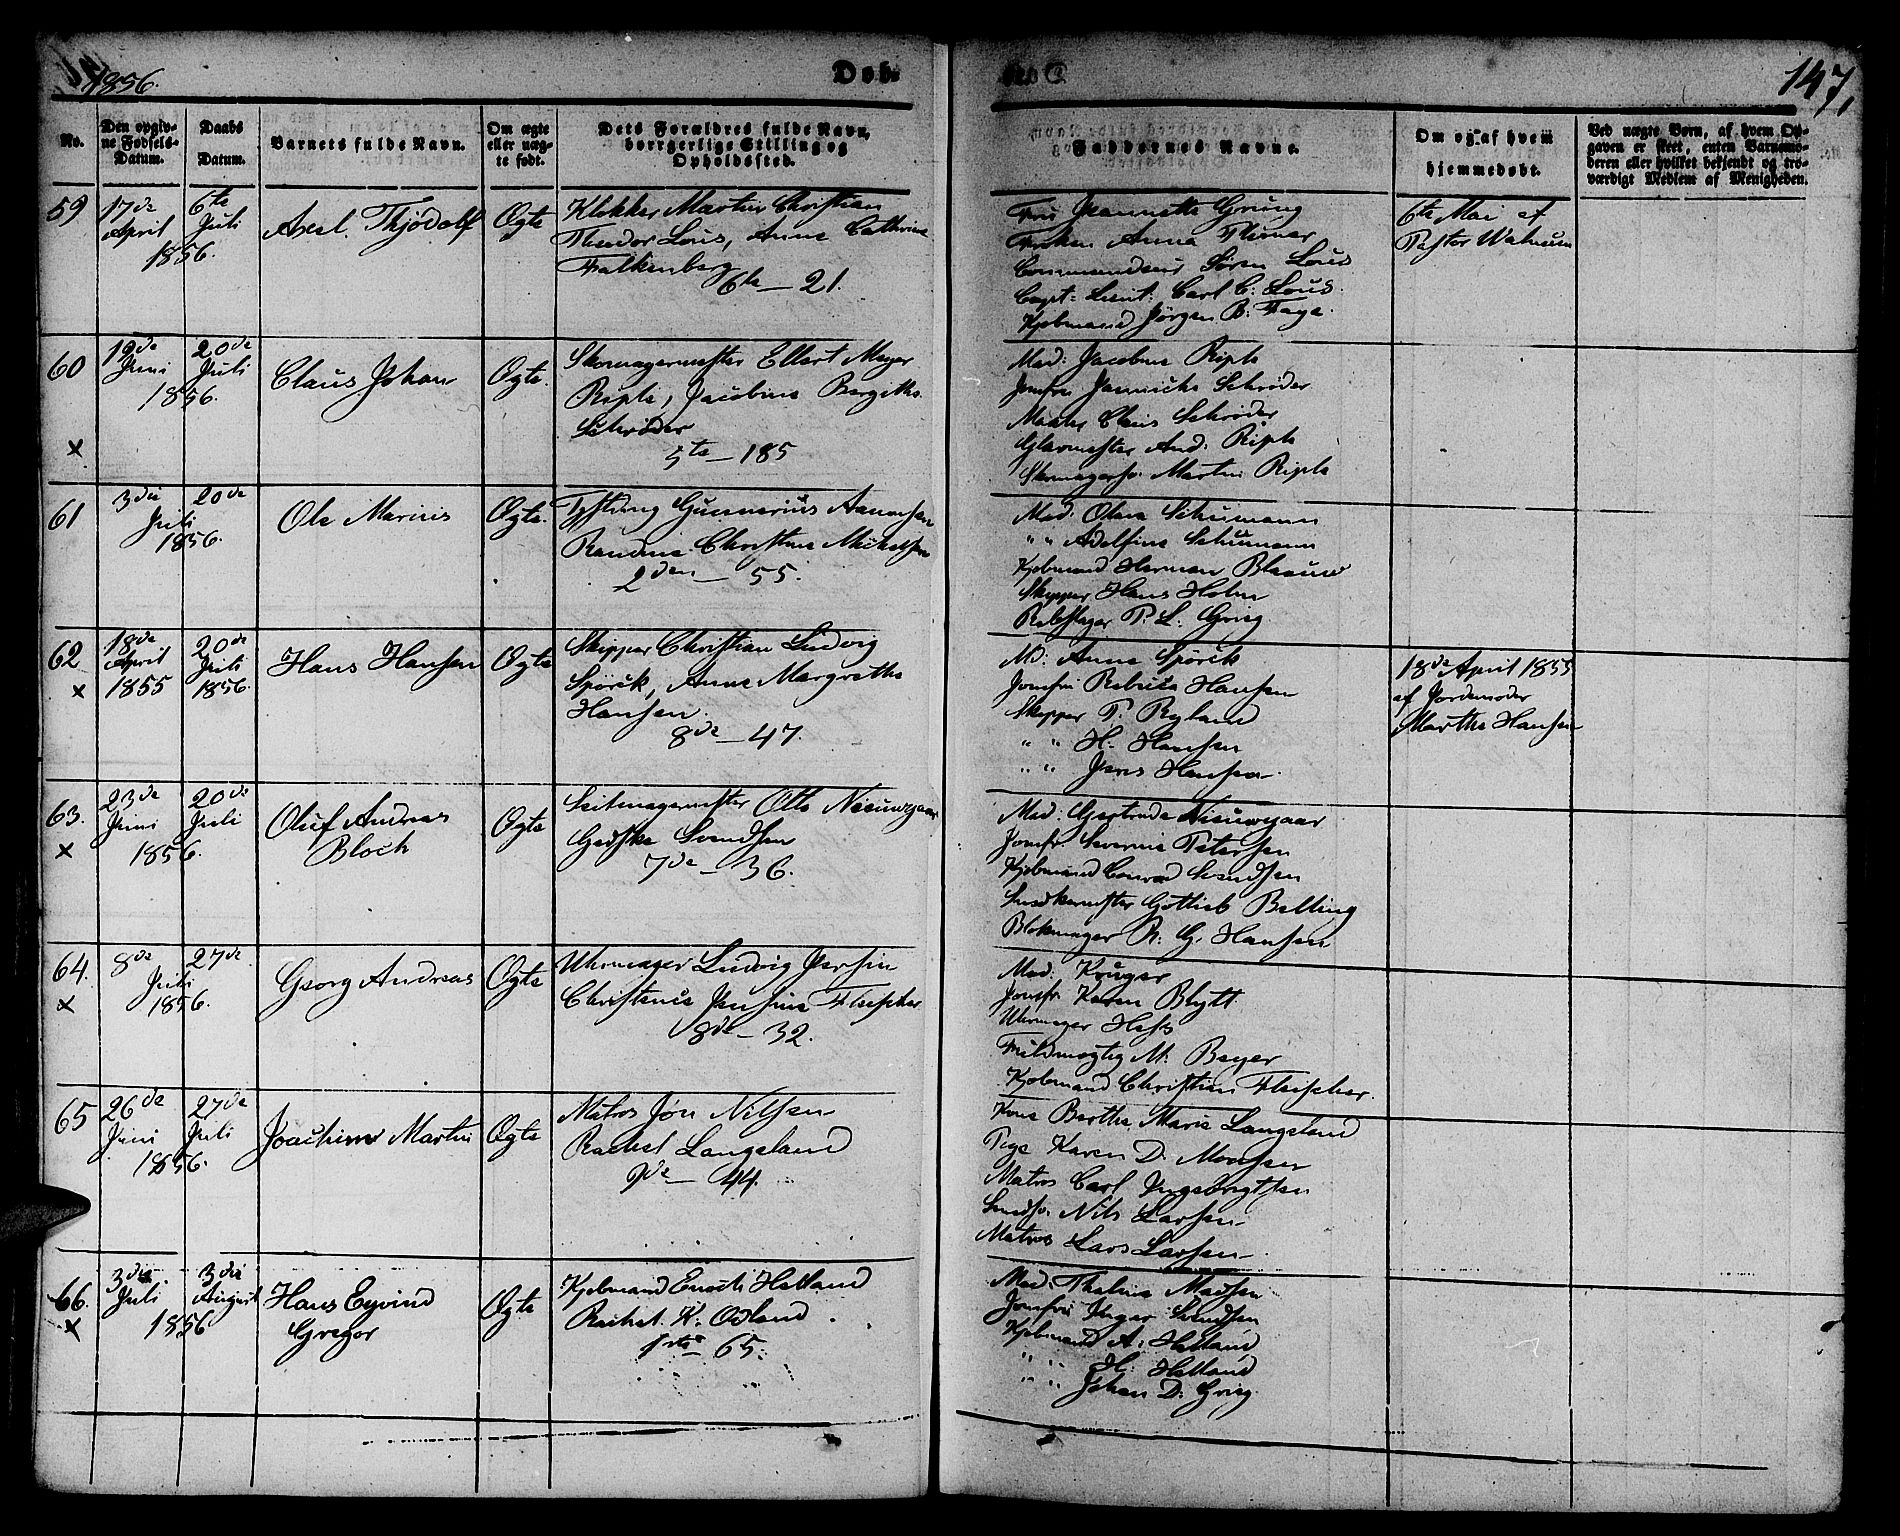 1856.
Døb-
147,
No.
Den opgiv-
ne Fødsels-
Datum.
Daabs
Datum.
Barnets fulde Navn.
Om ægte
eller uæg-
te født.
Dets Forældres fulde Navn,
borgerlige Stilling og
Opholdssted.
Faddernes Navne.
Om og af hvem
hjemmedøbt.
Ved uægte Børn, af hvem Op-
gaven er skeet, enten Barnemo-
deren eller hvilket bekjendt og tro-
værdigt Medlem af Menigheden.
59
17de
April
1856.
6te
Juli
Axel Thjodolf
Ægte
Klokker Martin Christian
Theodor Lous, Anne Cathrine
Falkenberg
6te - 21.
Fru Jeannette Grüng
Frøken Anna Thesner
Commandeur Søren Lous
Capt: Lieut: Carl C: Lous.
Kjøbmand Jørgen B: Faye.
6te Mai af
Pastor Walnum
60
x
12de
Juni
1856.
20de
Juli
Claus Johan
Ægte.
Skomagermester Ellert Meyer
Riple, Jacobine Bergithe
Schrøder
5te - 185
Mad: Jacobine Riple
Jomfru Jannicke Schrøder
Claus Schrøder
Glarmester And: Riple
Skomagersv. Martin Riple
61
3die
Juli
1856.
20de
Ole Marius
Ægte.
Gunnerius Aamodsen
Randine Christine Mikkelsen
2den - 55.
Mad: Olava Schumann
" " Adelfine Schumann
Kjøbmand Herman Blaauw
Skipper Hans Holm
Rebslager P. L. Grieg
62
x
18de
April
1855
20de
Juli
1856.
Hans Hansen
Ægte
Skipper Christian Ludvig
Spörck, Anne Margrethe
Hansen.
8de - 47.
Md: Anne Spörck
Jomfru Rebecca Hansen
Skipper P. Ryland
" " H. Hansen
" " Jens Hansen.
18de April 1855
af Jordemoder
Marthe Hansen
63.
x
23de
Juni
1856.
20de
Juli
Oluf Andreas
Bloch
Ægte
Seilmagermester Otto Nieuwejaar
Gjedske Svendsen
7de - 36.
Mad. Gjertrude Nieuwejaar
Jomfr. Severine Petersen
Kjøbmand Conrad Svendsen
Snedkermester Gottlieb Belling
Blokmager R: G. Hansen
64.
x
8de
Juli
1856.
27de
Georg Andreas
Ægte
Uhrmager Ludvig Jersin
Christence Jensine Fleischer
8de - 32.
Mad. Krüger
Jomfr. Karen Blytt
Uhrmager Hess
Fuldmægtig M. Beyer
Kjøbmand Christian Fleischer.
65
26de
Juni
1856.
27de
Juli
Joachim Martin
Ægte
Matros Jøn Nilsen
Rachel Langeland
9de - 44.
Kone Berthe Marie Langeland
Pige Karen D. Monsen
Matros Carl Ingebrigtsen
Nils Larsen
Matros Lars Larsen
66.
x
3die
Juli
1856
3die
August
Hans Eyvind
Gregor
Ægte
Kjøbmand Enoch Hetland
Rachel K. Odland
1ste 65.
Mad. Thaline Madsen
Jomfru Inger Svendsen
Kjøbmand A. Hetland
" " H: Hetland
" " Johan D. Grieg.